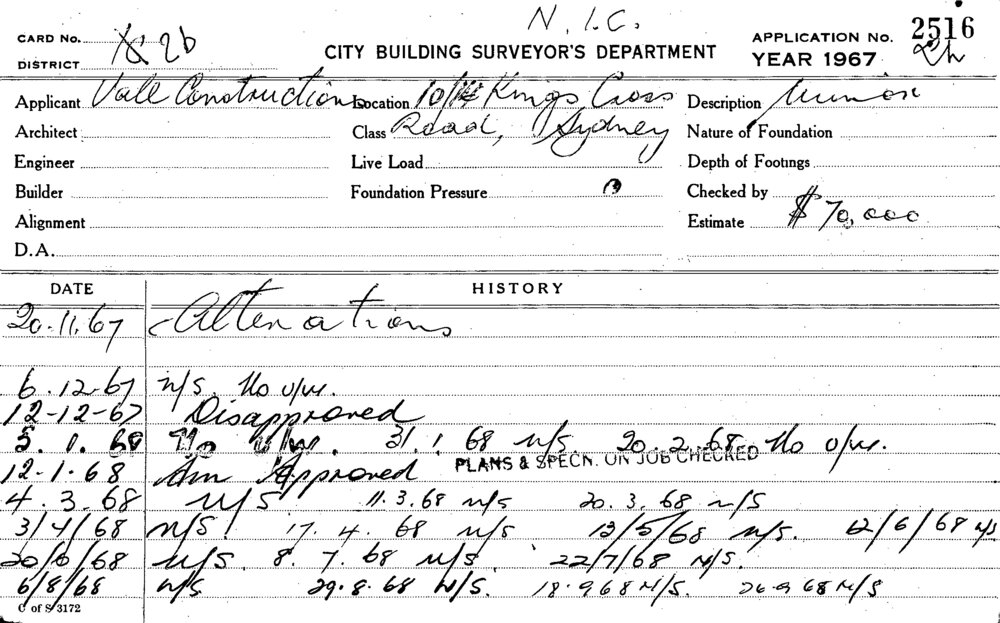 N.I.C.
CARD No. 2b
DISTRICT
CITY BUILDING SURVEYOR'S DEPARTMENT
APPLICATION No. 2516
YEAR 1967
Applicant Vall Constructions Location 10/14 Kings Cross Description Minor
Architect Class Road, Sydney Nature of Foundation
Engineer Live Load Depth of Footings
Builder Foundation Pressure Checked by
Alignment Estimate $70,000
D.A.
DATE HISTORY
20.11.67 Alterations
6.12.67 n/S. No o/w.
12-12-67 Disapproved
5.1.68 No o/w. 31.1.68 n/S 20.2.68 No o/w.
PLANS & SPECN. ON JOB CHECKED
12-1-68 Am Approved
4.3.68 n/S 11.3.68 n/S 20.3.68 n/S
3/4/68 n/S. 17.4.68 n/S 13/5/68 n/S. 12/6/68 n/S
20/6/68 n/S. 8.7.68 n/S. 22/7/68 N/S.
6/8/68 n/S 29.8.68 N/S. 18.9.68 N/S. 26.9.68 N/S
C of S 3172